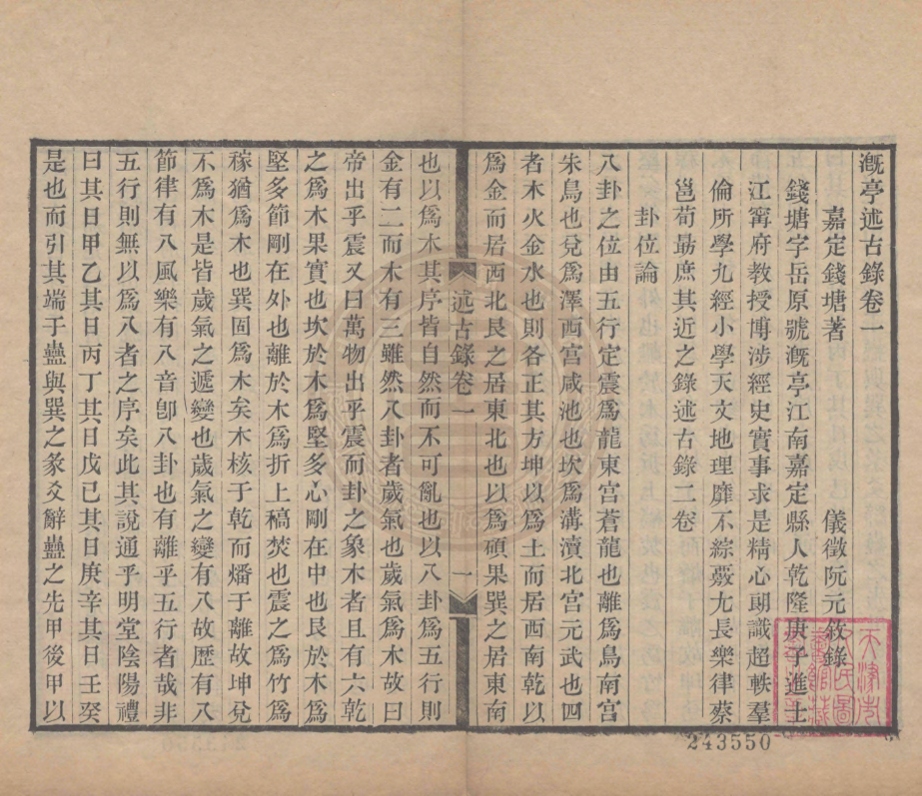 溉亭述古錄卷一
嘉定錢塘著　儀徵阮元敘錄
錢塘字岳原號溉亭江南嘉定縣人乾隆庚子進士
江甯府教授博涉經史實事求是精心朗識超軼羣
倫所學九經小學天文地理靡不綜覈尤長樂律蔡
邕荀勗庶其近之錄述古錄二卷
卦位論
八卦之位由五行定震爲龍東宮蒼龍也離爲鳥南宮
朱鳥也兌爲澤西宮咸池也坎爲溝瀆北宮元武也四
者木火金水也則各正其方坤以爲土而居西南乾以
爲金而居西北艮之居東北也以爲碩果巽之居東南
述古錄卷一　一
也以爲木其序皆自然而不可亂也以八卦爲五行則
金有二而木有三雖然八卦者歲氣也歲氣爲木故曰
帝出乎震又曰萬物出乎震而卦之象木者且有六乾
之爲木果實也坎於木爲堅多心剛在中也艮於木爲
堅多節剛在外也離於木爲折上稿焚也震之爲竹爲
稼猶爲木也巽固爲木矣木核于乾而燔于離故坤兌
不爲木是皆歲氣之遞變也歲氣之變有八故歷有八
節律有八風樂有八音卽八卦也有離乎五行者哉非
五行則無以爲八者之序矣此其說通乎明堂陰陽禮
曰其日甲乙其日丙丁其日戊己其日庚辛其日壬癸
是也而引其端于蠱與巽之彖爻辭蠱之先甲後甲以
243550